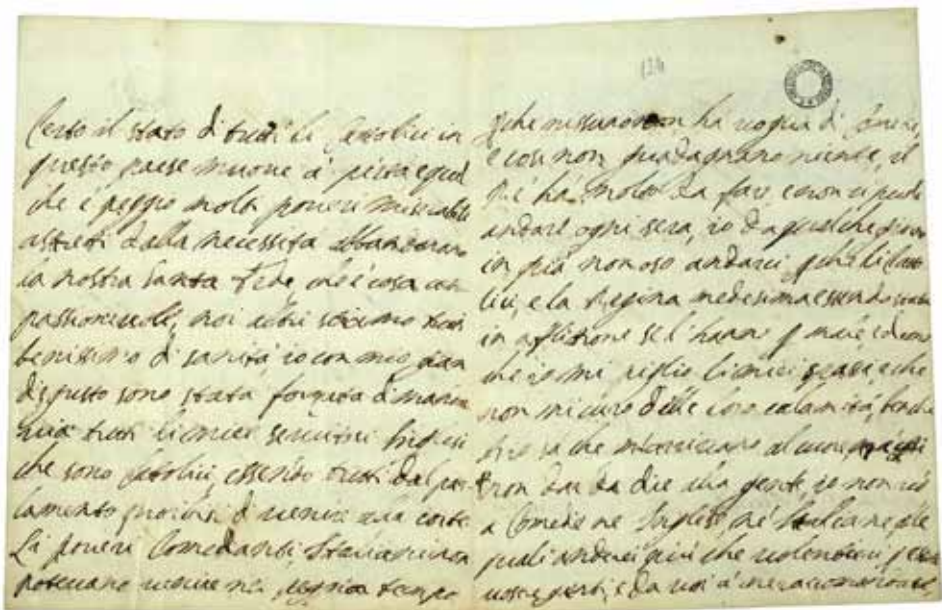 Certo il stato di tutti li Catolici in
questo paese muove à pietà e quel
che è peggio molti poveri miserabili
astretti dalla necessità abbandonano
la nostra Santa Fede che è cosa com
passionevole, noi altri stiamo tutti
benissimo di sanità, io con mio gran
disgusto sono stata forzata di mandar
via tutti li miei servitori Inglesi
che sono Catolici, essendo tutti dal par
lamento proibiti di venire alla corte
Li poveri Comedianti Italiani non
potevano venire in peggior tempo
che nissuno non ha voglia di Comedie
e così non guadagnano niente, il
Rè hà molto da fare e non ci puole
andare ogni sera, io da qualche giorno
in quà non oso andarci che li Cato
lici, e la Regina medesima essendo state
in afflitione se l'hanno p male
che io mi piglio li miei spassi, e che
non mi curo delle loro calamità, benche
sa che al cuore
non dar da dire alla gente, io non vò
a Comedie ne Inglese, nè Italiane, alle
quali anderei più che volentieri